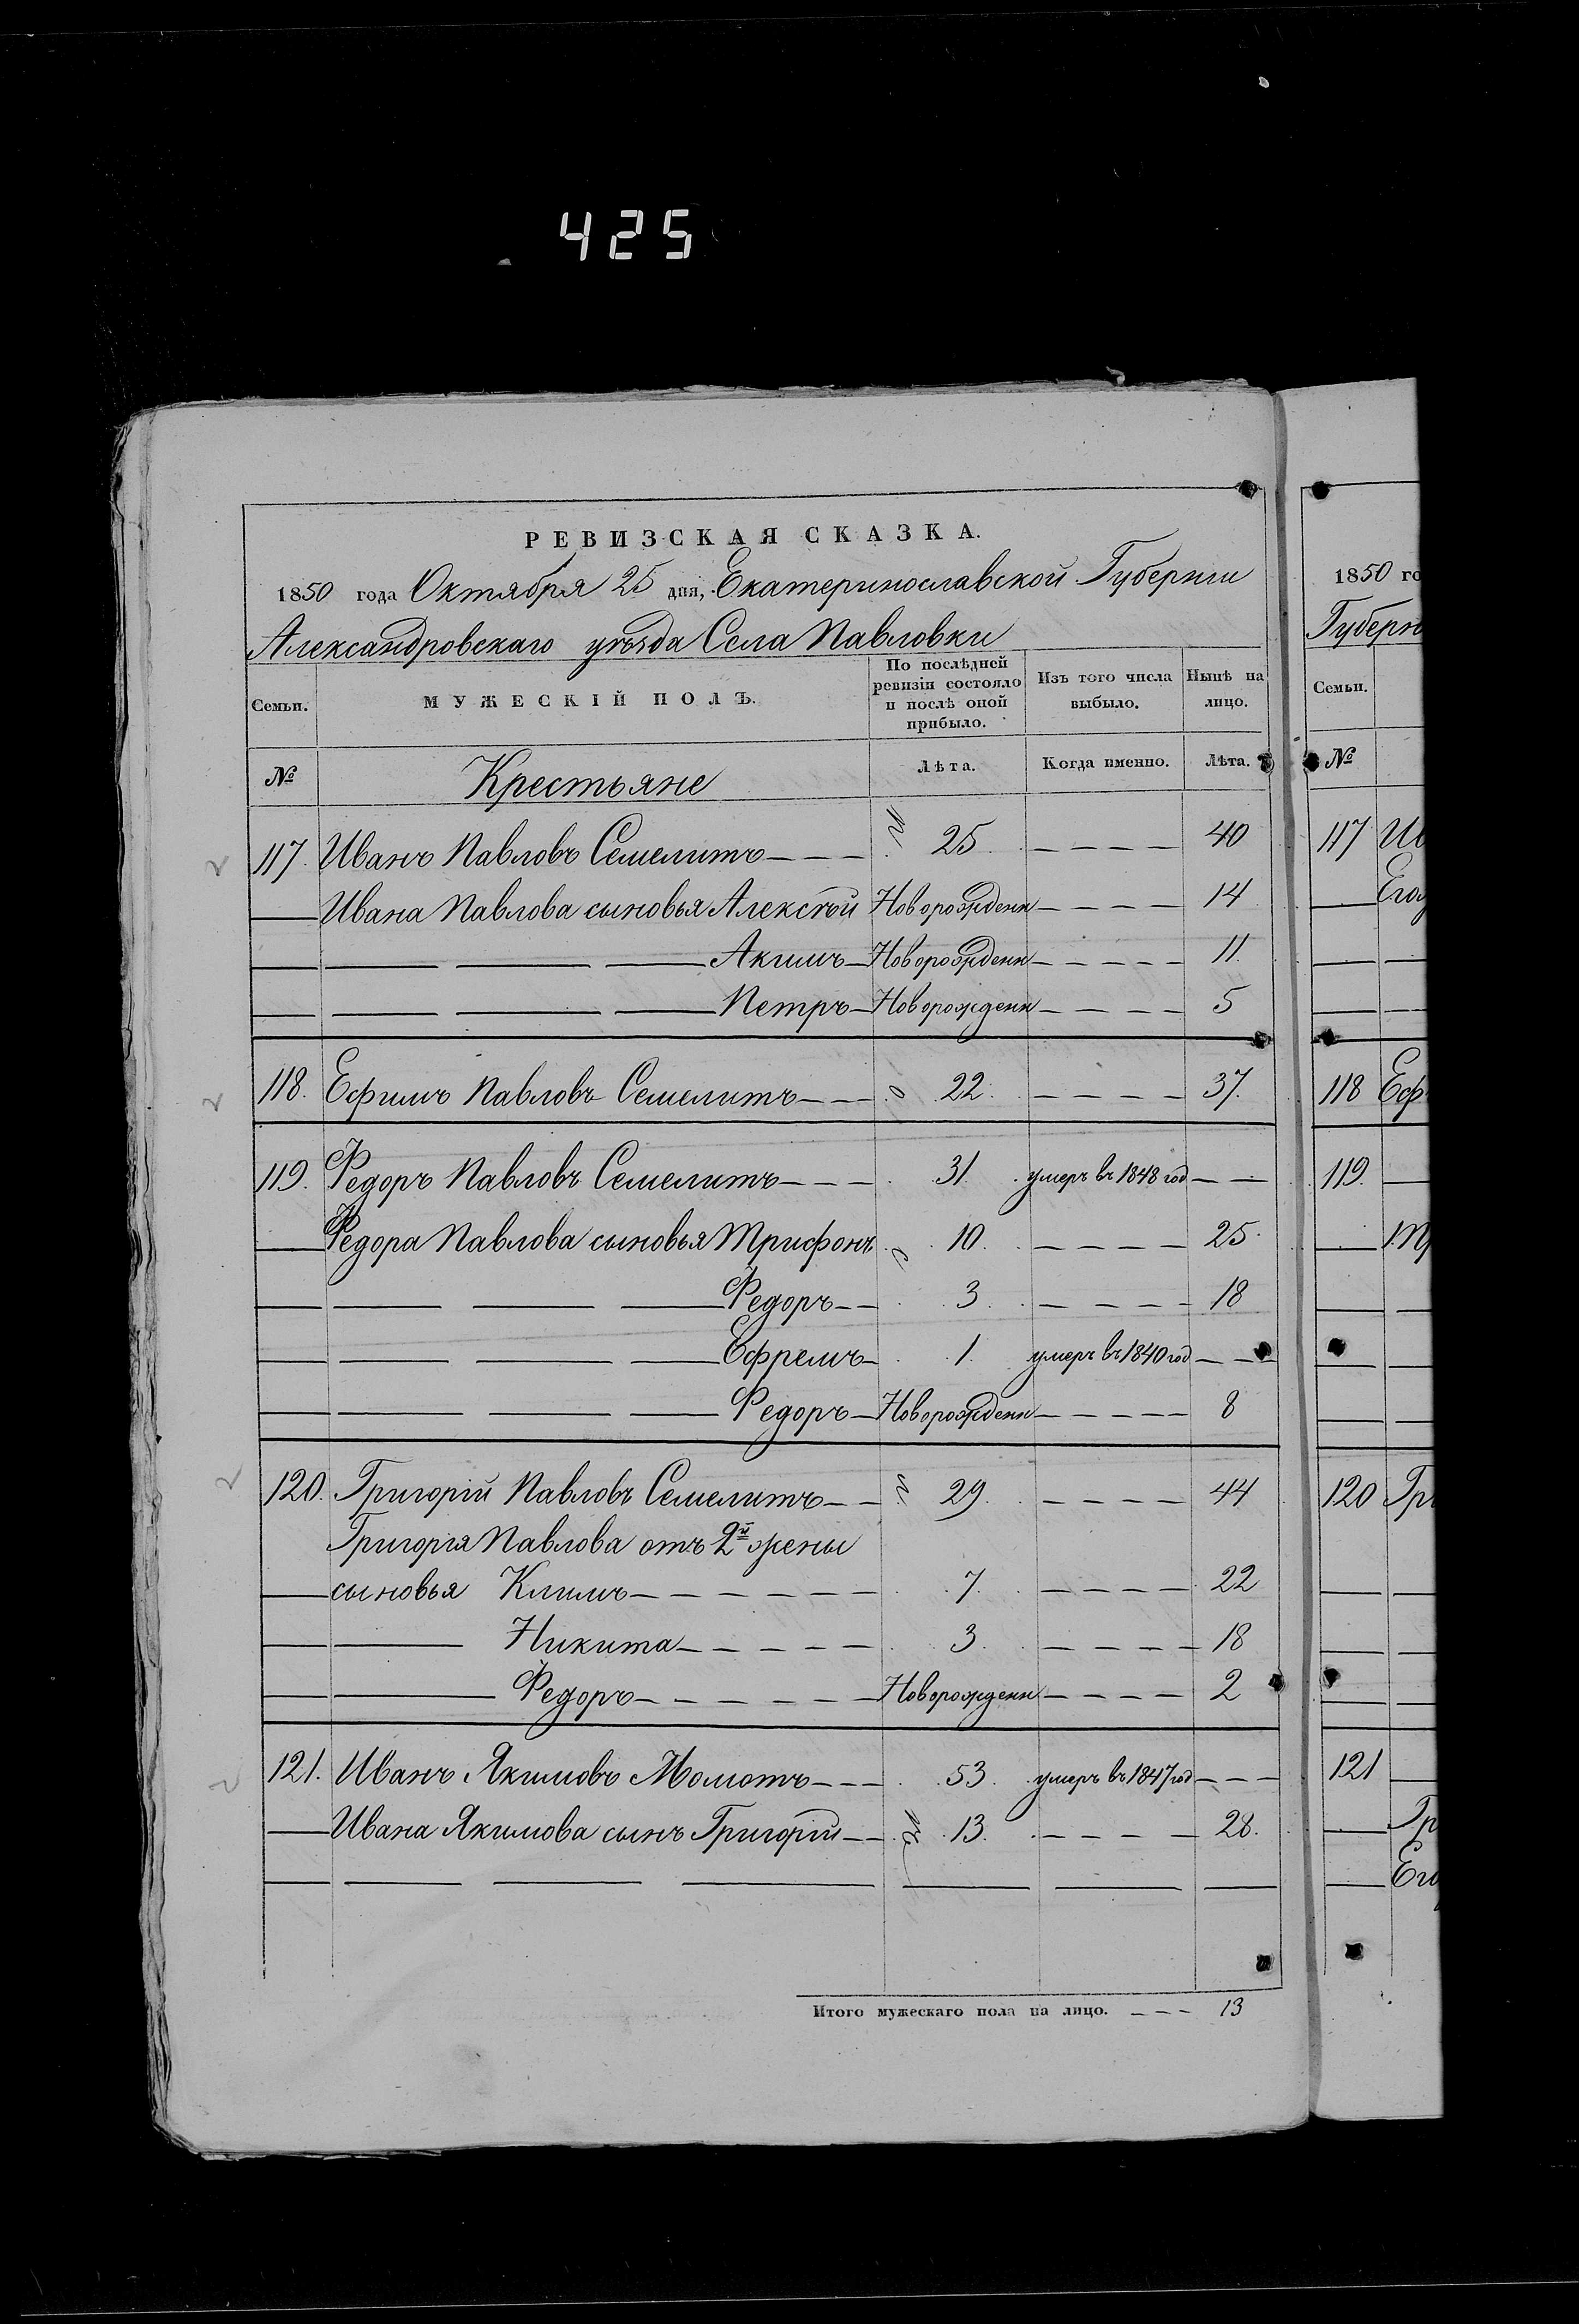 425
РЕВИЗСКАЯ СКАЗКА.
1850 года Октября 25 дня, Екатеринославской Губернии
Александровскаго уѣзда Села Павловки
Семьи. МУЖЕСКІЙ ПОЛЪ. По послѣдней ревизіи состояло и послѣ оной прибыло. Изъ того числа выбыло. Нынѣ на лицо.
№ Крестьяне Лѣта. Когда именно. Лѣта.
117. Иванъ Павловъ Семелитъ 25 40
Ивана Павлова сыновья Алексѣй Новорожденн 14
Акимъ Новорожденн 11.
Петръ Новорожденн 5
118. Ефимъ Павловъ Семелитъ 22. 37.
119. Федоръ Павловъ Семелитъ 31. умеръ въ 1848 год
Федора Павлова сыновья Трифонъ 10. 25
Федоръ 3. 18
Ефремъ 1. умеръ въ 1840 год
Федоръ Новорожденн 8
120. Григорій Павловъ Семелитъ 29. 44
Григорія Павлова отъ 2й жены
сыновья Климъ 7. 22
Никита 3. 18
Федоръ Новорожденн 2
121. Иванъ Якимовъ Момотъ 53. умеръ въ 1847 год
Ивана Якимова сынъ Григорій 13. 28.
Итого мужескаго пола на лицо. 13
1850 го
Губерн
Семьи.
№
117 Ив
Его
118 Еф
119.
Тр
120 Гр
121
Гр
Ег